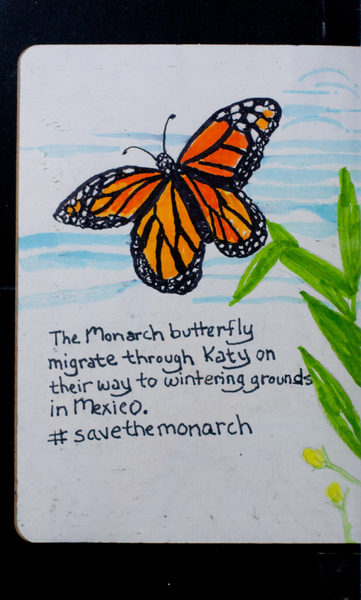 The Monarch butterfly
migrate through Katy on
their way to wintering grounds
in Mexico.
# savethemonarch